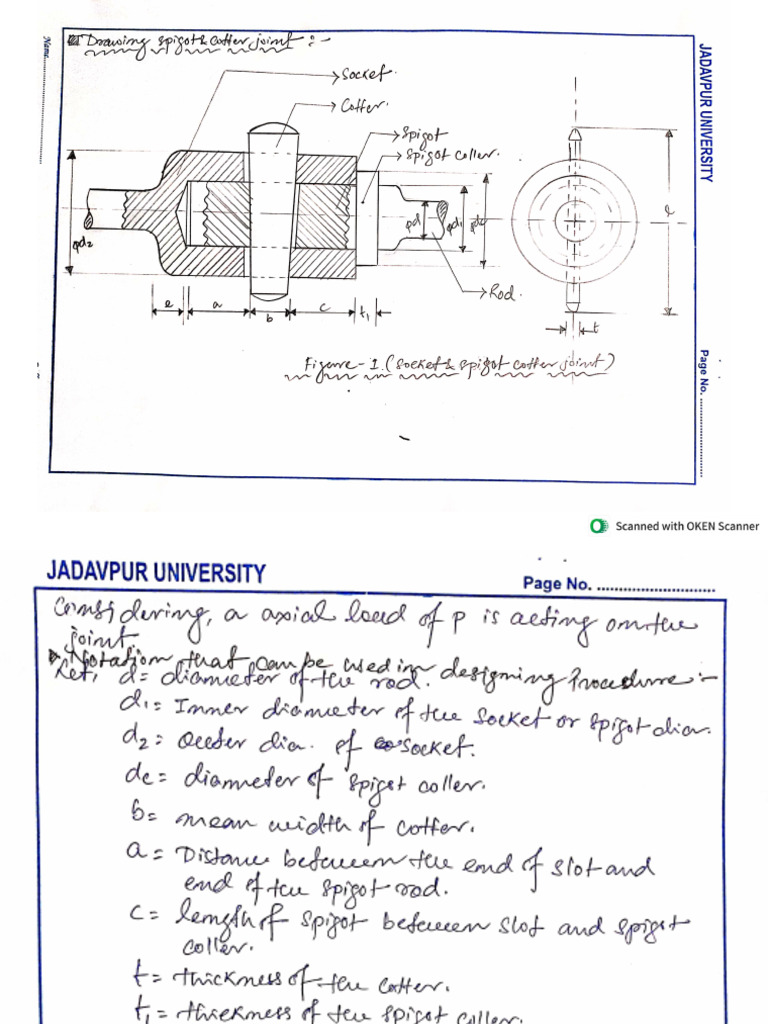 Drawing spigot & Cotter joint :-
Name..............................
JADAVPUR UNIVERSITY
Socket.
Cotter.
Spigot
Spigot coller.
ød₂
ød
ød₁
ødc
l
e
a
b
c
t₁
Rod.
t
Figure-1.(Socket & spigot cotter joint)
Page No. ..............................
Scanned with OKEN Scanner
JADAVPUR UNIVERSITY
Page No. ..............................
Considering, a axial load of p is acting on the
joint.
Notation that can be used in designing Procedure:-
Let, d= diameter of the rod.
d₁= Inner diameter of the socket or spigot dia.
d₂= outer dia. of socket.
dc= diameter of spiget coller.
b= mean width of cotter.
a= Distance between the end of slot and
end of the spigot rod.
c= length of spigot between slot and spiget
coller.
t= thickness of the cotter.
t₁= thickness of the spigot coller.